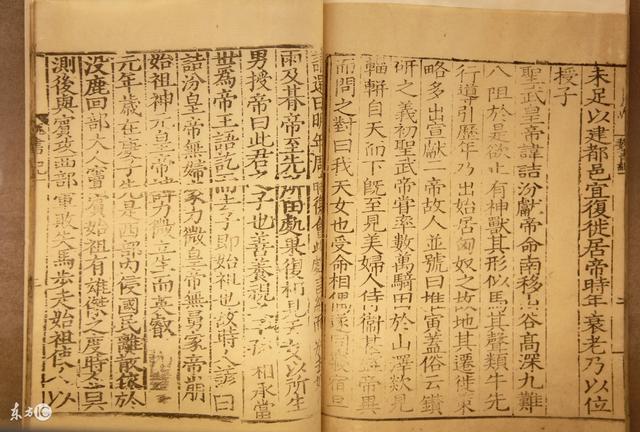 未足以建都邑宜復徙居帝時年衰老乃以位
授子
聖武皇帝諱詰汾獻帝命南移山谷高深九難
八阻於是欲止有神獸其形似馬其聲類牛先
行導引歷年乃出始居匈奴之故地其遷徙策
略多出宣獻二帝故人並號曰推寅蓋俗云鑽
研之義初聖武帝嘗率數萬騎田於山澤欻見
輜軿自天而下既至見美婦人侍衛甚盛帝異
而問之對曰我天女也受命相偶遂同寢宿旦
請還曰明年周時復會此處言終而
雨及朞帝至先所田處果復相見天女以所生
男授帝曰此君之子也善養視之子孫相承當
世爲帝王語訖而去子即始祖也故時人諺曰
詰汾皇帝無婦家力微皇帝無舅家帝崩
始祖神元皇帝諱力微立生而英叡
元年歲在庚子先是西部內侵國民離散依於
没鹿回部大人竇賓始祖有雄傑之度時人莫
測後與賓攻西部軍敗失馬步走始祖使人以
東方IC